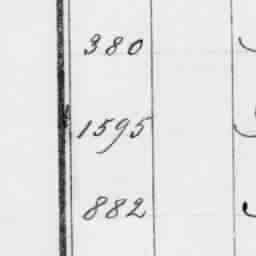 380
1595
882